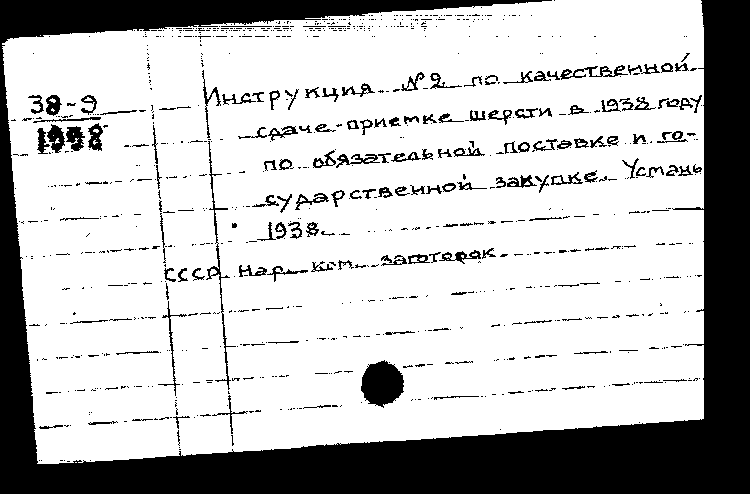 38-9
1938
Инструкция № 2 по качественной
сдаче-приемке шерсти в 1938 году
по обязательной поставке и го-
сударственной закупке. Устань
1938.
СССР Нар. ком. заготовок.